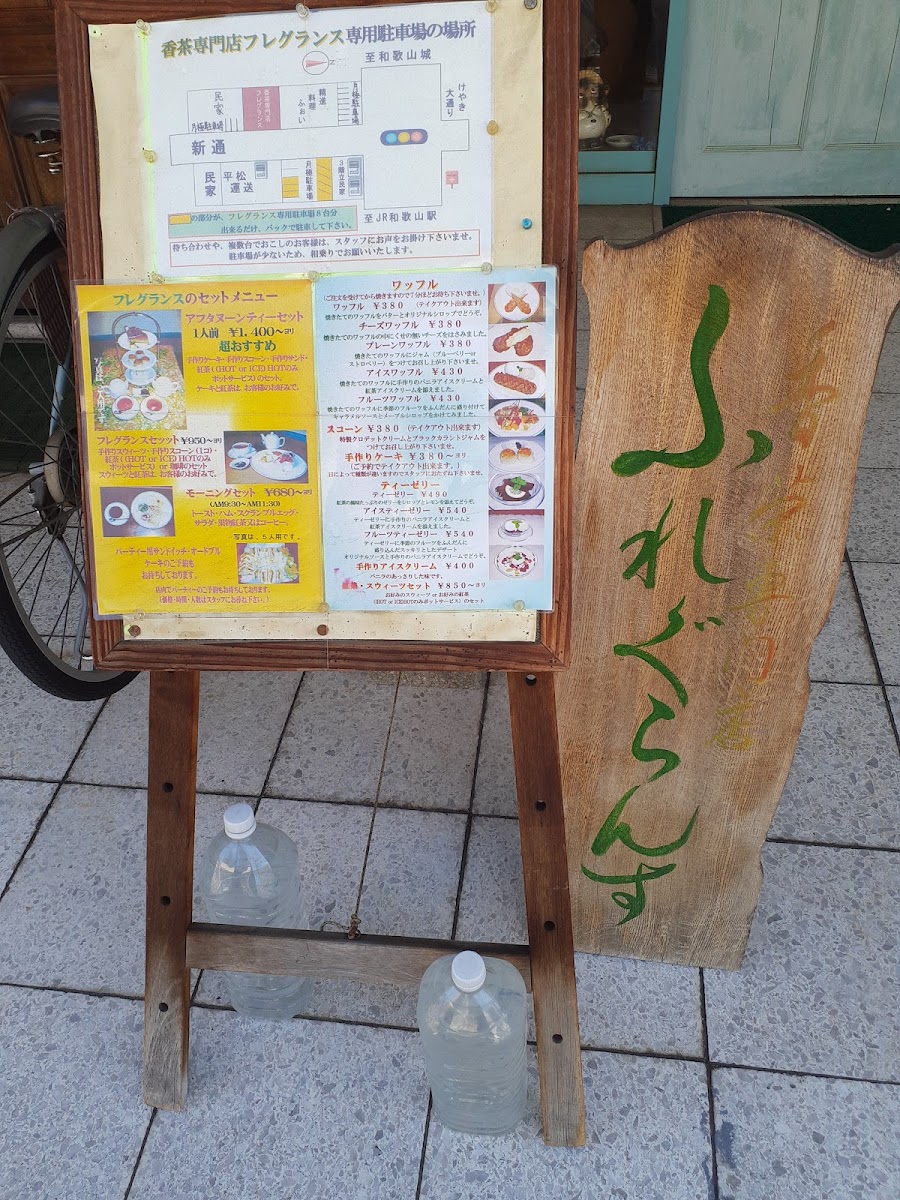 香茶専門店フレグランス専用駐車場の場所
至和歌山城
けやき大通り
民家
香茶専門店フレグランス
精進料理ふぉい
月極駐車場
月極駐車場
新通
民家
平松運送
月極駐車場
3階立民家
至JR和歌山駅
の部分が、フレグランス専用駐車場8台分
出来るだけ、バックで駐車して下さい。
待ち合わせや、複数台でおこしのお客様は、スタッフにお声をお掛け下さいませ。
駐車場が少ないため、相乗りでお願いいたします。
フレグランスのセットメニュー
アフタヌーンティーセット
1人前 ¥1,400〜ヨリ
超おすすめ
手作りケーキ・手作りスコーン・手作りサンド・
紅茶(（HOT or ICE) HOTのみ
ポットサービス）のセット。
ケーキと紅茶は、お客様のお好みで。
フレグランスセッット ¥950〜ヨリ
手作りスウィーツ・手作りスコーン（1コ）・
紅茶(（HOT or ICE) HOTのみ
ポットサービス）or 珈琲のセット
スウィーツと紅茶は、お客様のお好みで。
モーニングセット ¥680〜ヨリ
(AM9:30〜AM11:30)
トースト・ハム・スクランブルエッグ・
サラダ・果物紅茶又はコーヒー。
写真は、5人用です。
パーティー用サンドイッチ・オードブル
ケーキのご予約も
お待ちしております。
店内でパーティーのご予約もお待ちしております。
(価格・時間・人数はスタッフにお尋ね下さい。)
ワッフル
(ご注文を受けてから焼きますので7分ほどお待ち下さいませ。)
ワッフル ¥380 (テイクアウト出来ます)
焼きたてのワッフルをバターとオリジナルシロップでどうぞ。
チーズワッフル ¥380
焼きたてのワッフルの中にくせの無いチーズをはさみました。
プレーンワッフル ¥380
焼きたてのワッフルにジャム（ブルーベリーor
ストロベリー）をつけてお召し上がり下さいませ。
アイスワッフル ¥430
焼きたてのワッフルに手作りのバニラアイスクリームと
紅茶アイスクリームを添えました。
フルーツワッフル ¥430
焼きたてのワッフルに季節のフルーツをふんだんに盛り付けて
キャラメルソースとメープルシロップをかけてみました。
スコーン ¥380 (テイクアウト出来ます)
特製クロテッドクリームとブラックカラントジャムを
つけてお召し上がり下さいませ。
手作りケーキ ¥380〜ヨリ
(ご予約でテイクアウト出来ます。)
日によって種類が違いますのでスタッフにおたずね下さいませ。
ティーゼリー
ティーゼリー ¥490
紅茶の風味たっぷりのゼリーをシロップとレモンを添えてどうぞ。
アイスティーゼリー ¥540
ティーゼリーに手作りのバニラアイスクリームと
紅茶アイスクリームを添えました。
フルーツティーゼリー ¥540
ティーゼリーに季節のフルーツをふんだんに
盛り込んだスッキリとしたデザート
オリジナルソースと手作りのバニラアイスクリームでどうぞ。
手作りアイスクリーム ¥400
バニラのあっさりした味です。
・スウィーツセット ¥850〜ヨリ
お好みのスウィーツ or お好みの紅茶
(HOT or ICE) HOTのみポットサービス）のセット
ふれぐらんす